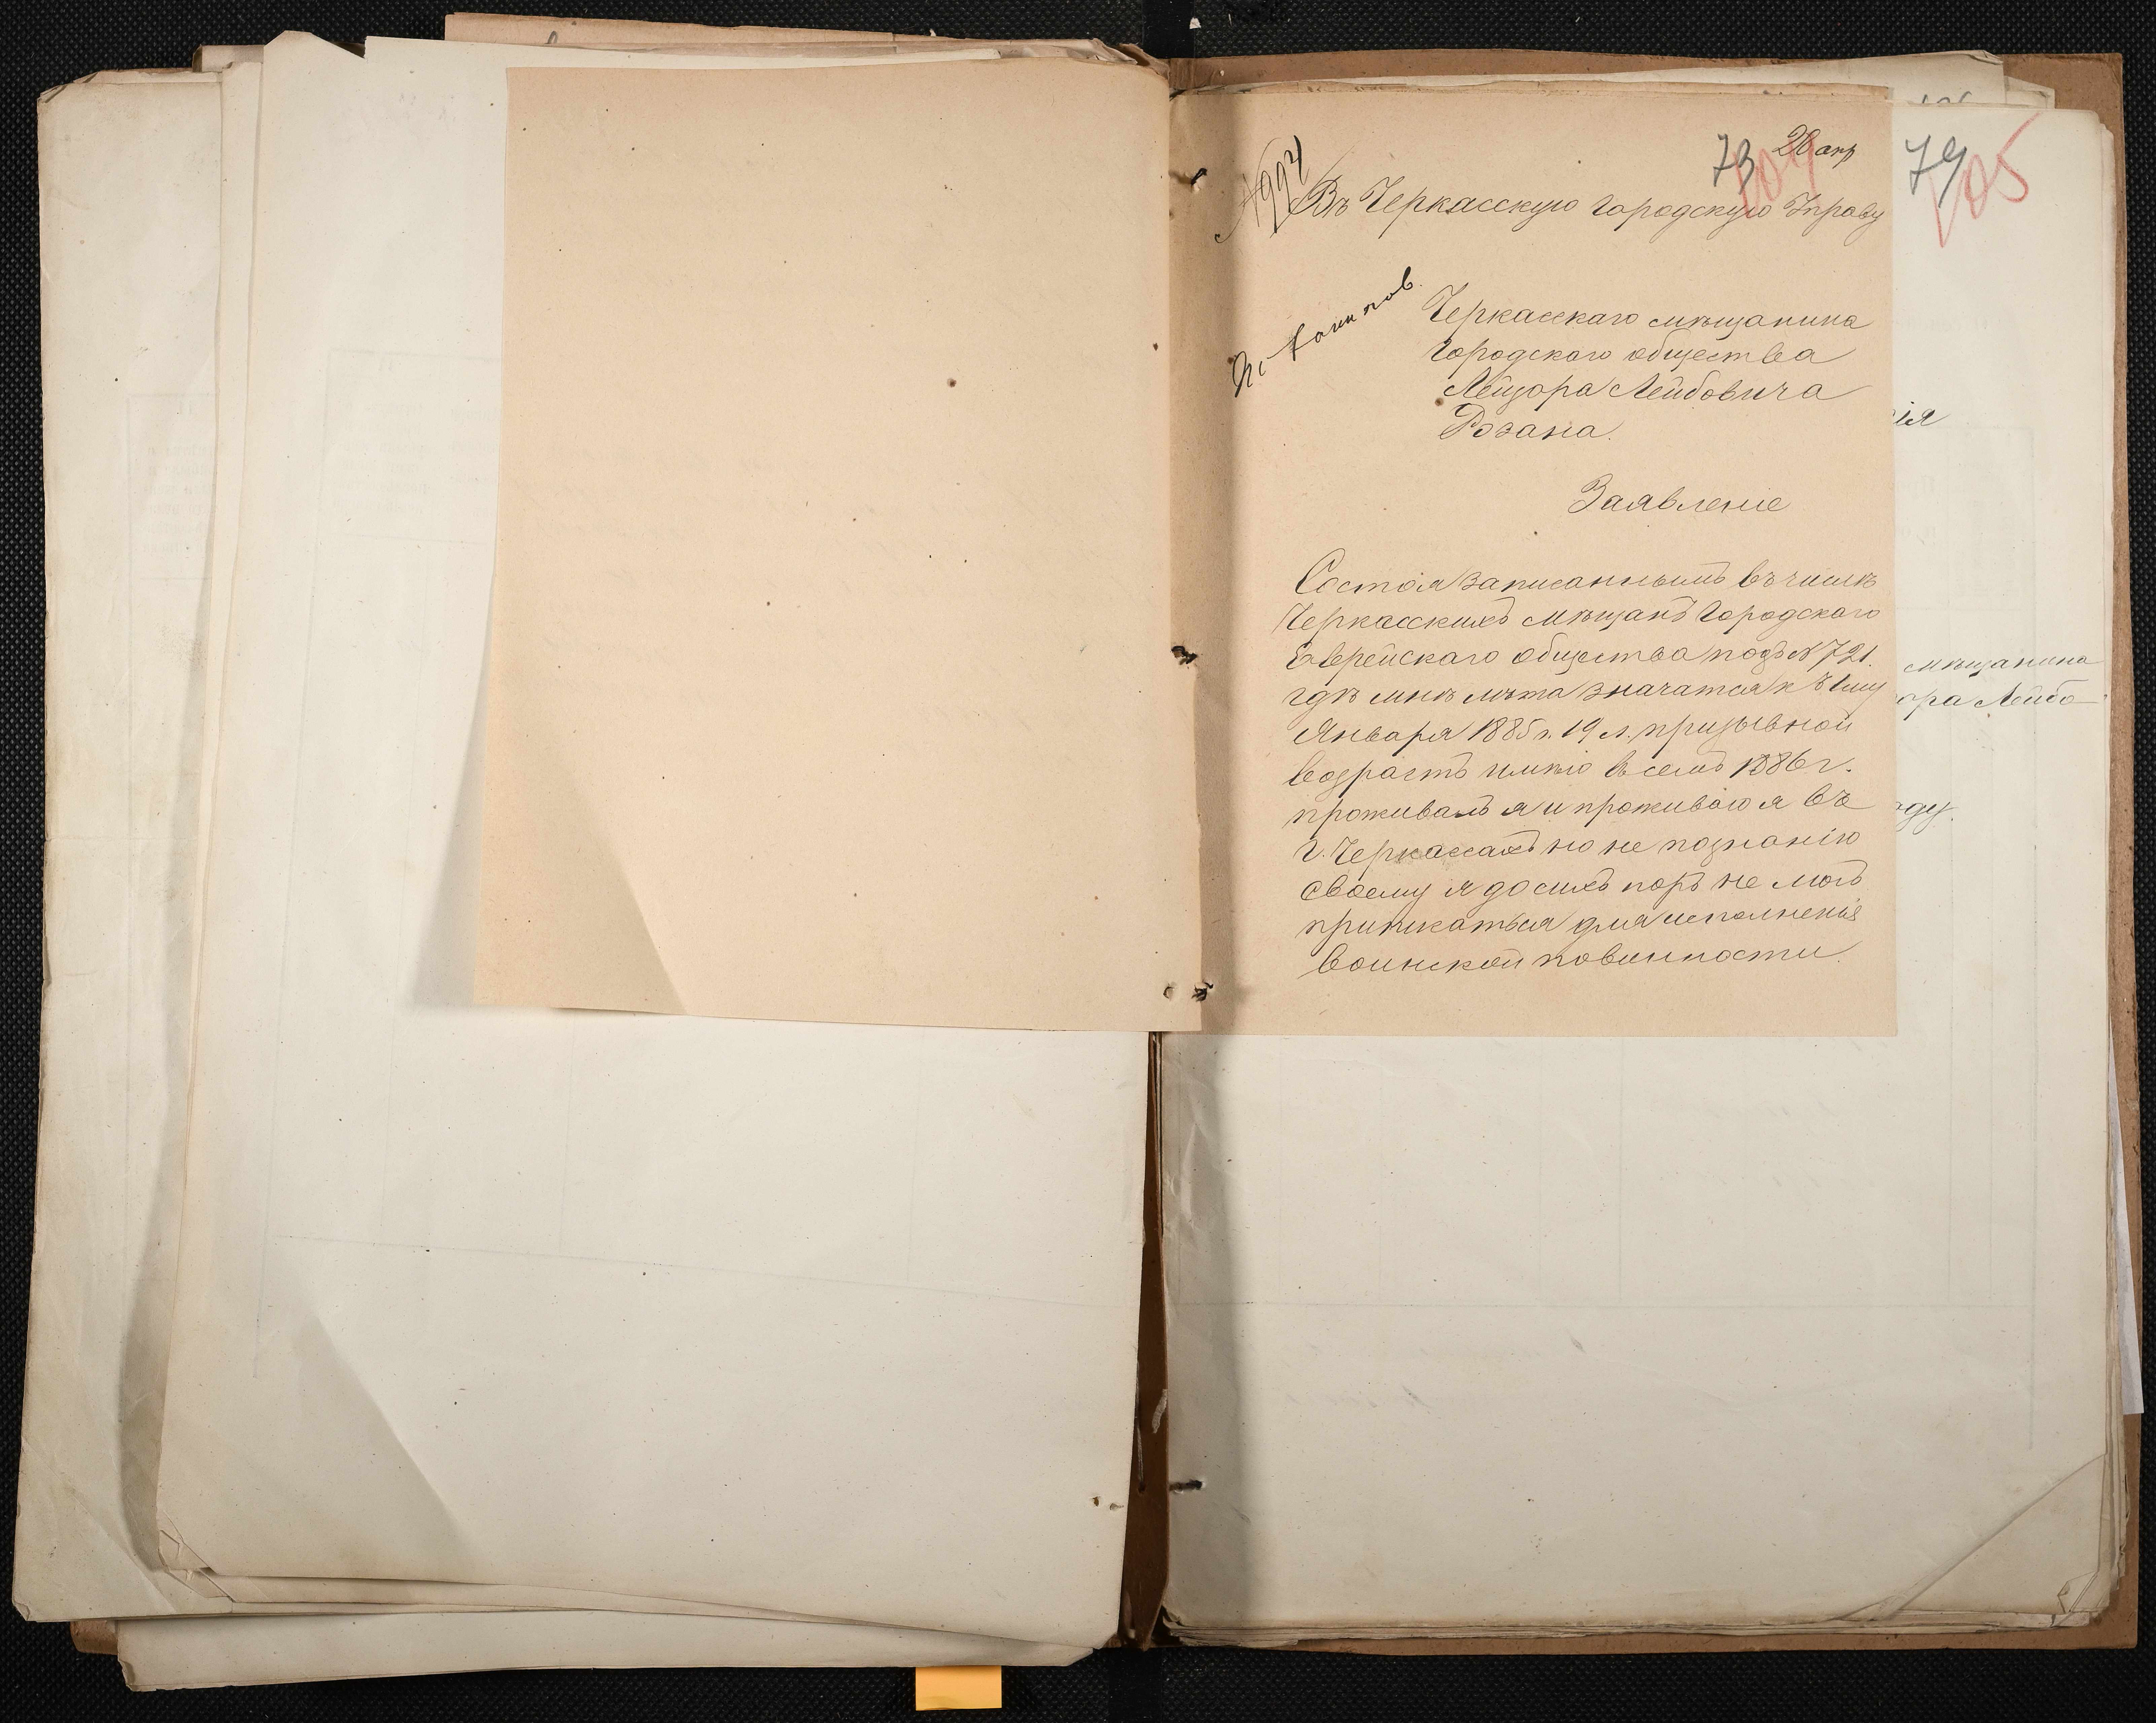 73
28 апр
104
79
105
1997
Въ Черкасскую Городскую Управу
Черкасскаго мѣщанина
Городского общества
Лейзора Лейбовича
Розана.
Заявленіе
Состоя записаннымъ въ числѣ
Черкасскихъ мѣщанъ Городского
Еврейскаго общества подъ № 721.
гдѣ мнѣ лѣта значатся къ 1му
Января 1885 г. 19 л. призывной
возрастъ имѣю въ семъ 1886 г.
проживалъ я и проживаю я въ
г. Черкассахъ но не познанію
своему я до сихъ поръ не могъ
приписаться для исполненія
воинской повинности.
ія
мѣщанина
ора Лейбо-
оду.